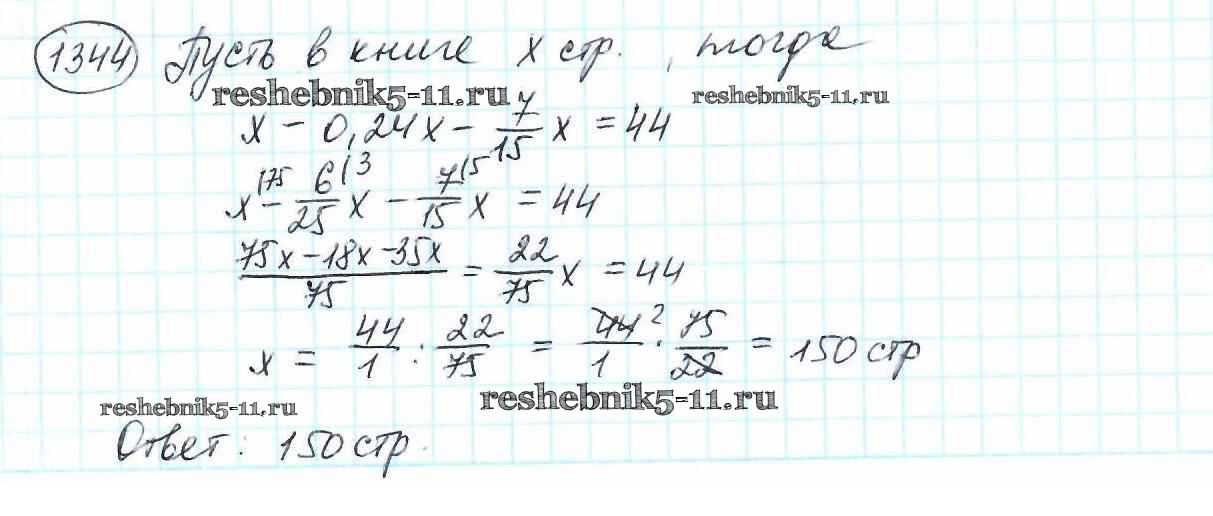 1344 Пусть в книге x стр., тогда
reshebnik5-11.ru reshebnik5-11.ru
x - 0,24x - 7/15 x = 44
x^(75 - 6^(3/25 x - 7^(5/15 x = 44
75x - 18x - 35x/75 = 22/75 x = 44
x = 44/1 : 22/75 = 44²/1 · 75/22 = 150 стр
reshebnik5-11.ru reshebnik5-11.ru
Ответ: 150 стр.